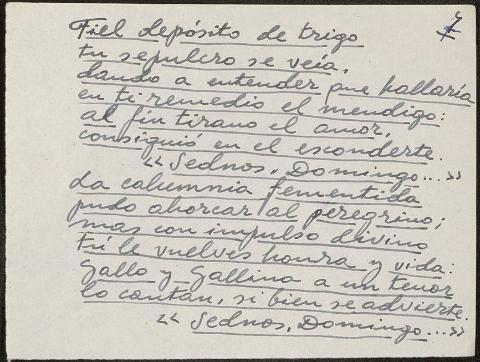 7
Fiel depósito de trigo
tu sepulcro se veía,
dando a entender que hallaría
en ti remedio el mendigo:
al fin tirano el amor,
consiguió en el esconderte.
<< Sednos, Domingo...>>
La calumnia fementida
pudo ahorcar al peregrino;
mas con impulso divino
Tú le vuelves honra y vida:
Gallo y Gallina a un tenor
lo cantan, si bien se advierte.
<< Sednos, Domingo...>>